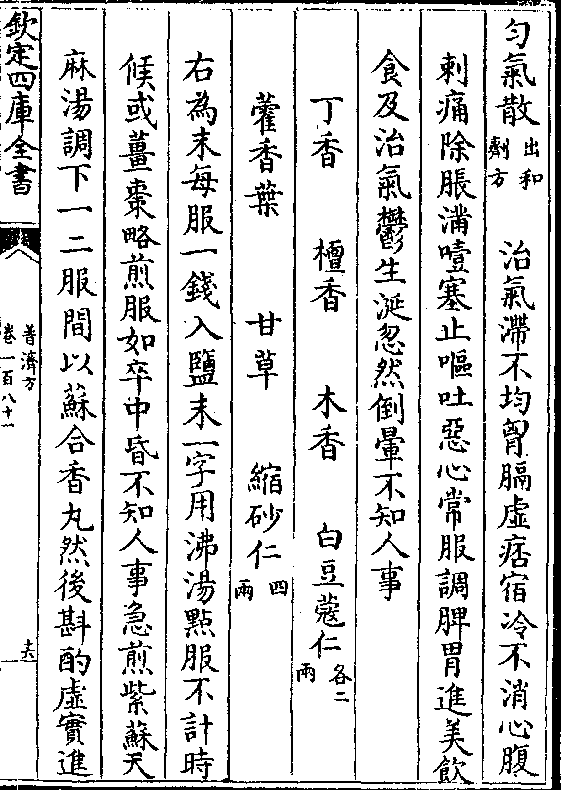 匀氣散出和劑方 治氣滯不均胷膈虛痞宿冷不消心腹
刺痛除脹滿噎塞止嘔吐惡心常服調脾胃進美飲
食及治氣鬱生涎忽然倒暈不知人事
丁香 檀香 木香 白豆蔻仁各二兩
藿香葉 甘草 縮砂仁四兩
右為末每服一錢入鹽末一字用沸湯點服不計時
候或薑棗略煎服如卒中昏不知人事急煎紫蘇天
麻湯調下一二服間以蘇合香丸然後斟酌虛實進
欽定四庫全書
普濟方
卷一百八十一